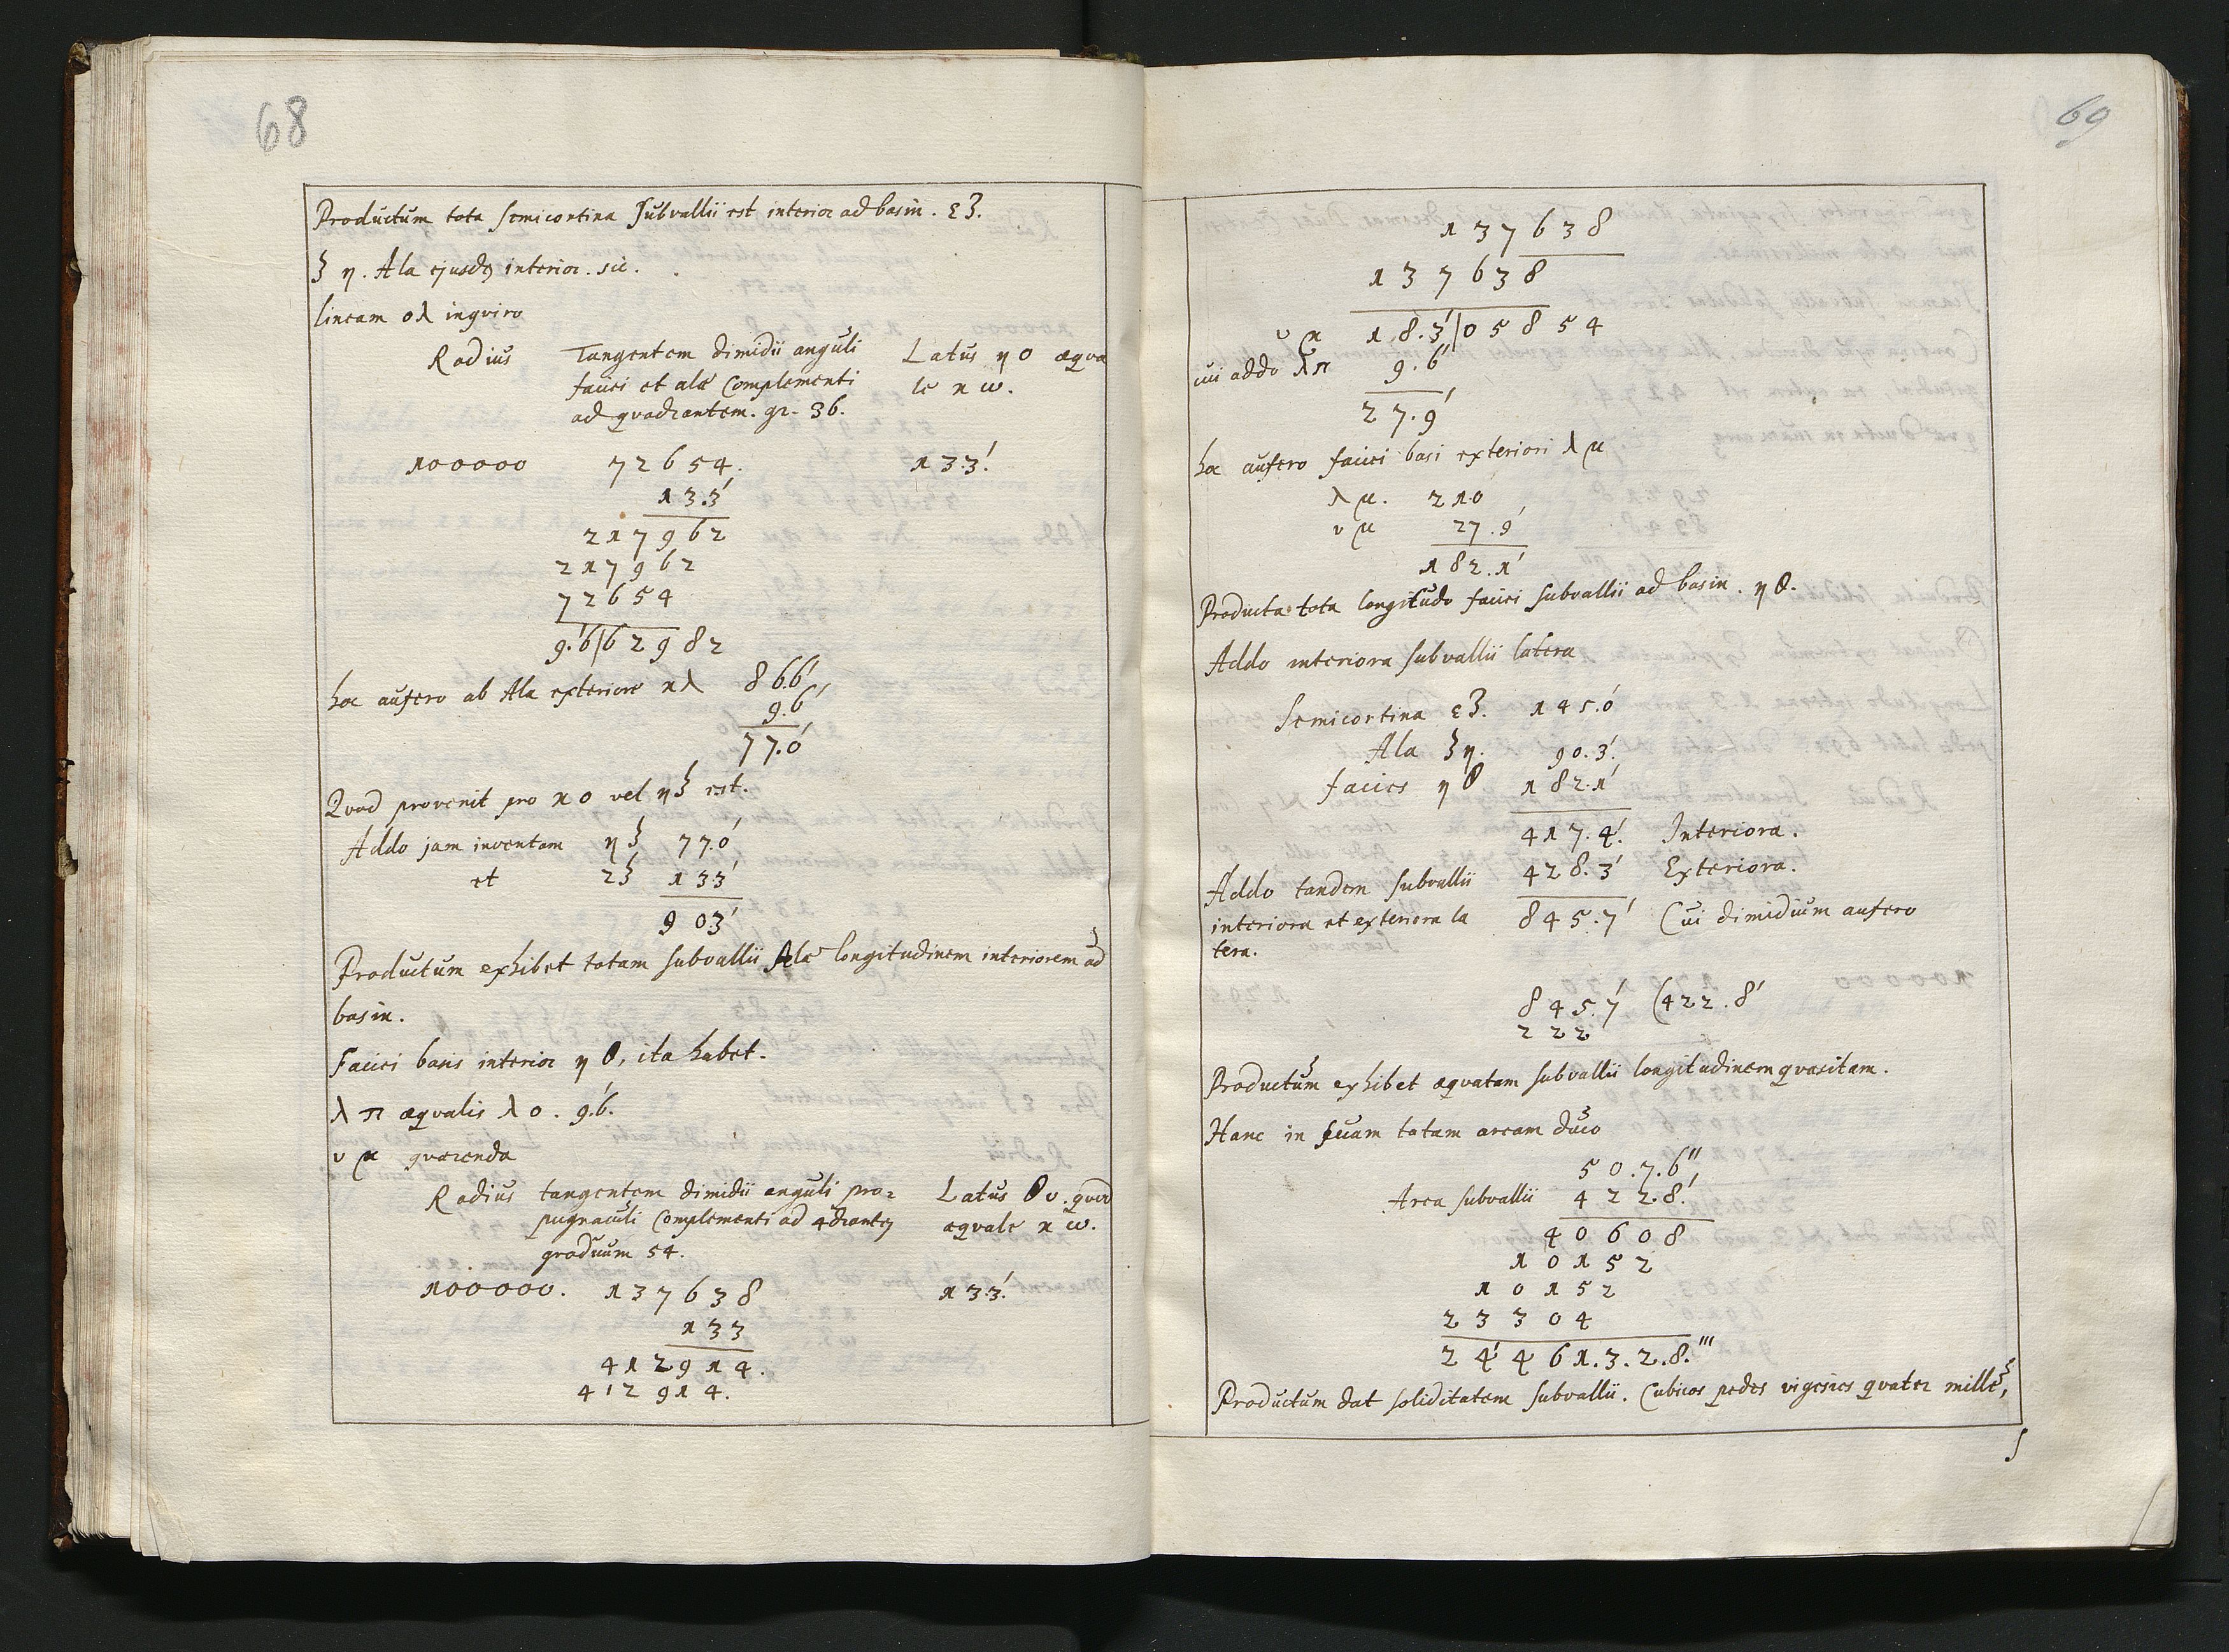 68
Productum tota semicortina subvallii est interior ad basin. εζ.
ζ η. Ala ejusdem interior. sic.
lineam oλ inqviro
Radius Tangentem dimidii anguli Latus η o æqva
faciei et alæ Complementi le κ ω.
ad qvadrantem. gr. 36.
100000 72654. 13.3'.
13.3'
217962
217962
72654
9.6'|62982
hoc aufero ab Ala exteriore κλ 86.6'
9.6'
77.0'
Qvod provenit pro κ o vel ηξ est.
Addo jam inventam ηξ 77.0'
et zξ 13.3'
90.3'
Productum exhibet totam subvallii Alæ longitudinem interiorem ad
basin.
Faciei basis interior η θ, ita habet.
λ π æqvalis λ o. 9.6'.
υ μ qværenda
Radius tangentem dimidii anguli pro= Latus θ υ. qvod
pugnaculi Complementi ad 4drantem æqvale κ ω.
graduum 54.
100000. 137638 13.3'.
133
412914.
412914.
69
137638
137638
υ μ 18.3'|05854
cui addo λπ 9.6'
27.9'
hoc aufero faciei basi exteriori λ μ
λ μ. 210
υ μ 27.9'
182.1'
Producta tota longitudo faciei subvallii ad basin. η θ.
Addo interiora subvallii latera
Semicortina εζ. 145.0'
Ala ζη. 90.3'.
facies η θ 182.1'
417.4'. Interiora.
Addo tandem subvallii 428.3' Exteriora.
interiora et exteriora la 845.7' Cui dimidium aufero
tera.
845.7' (422.8'
222
Productum exhibet æqvatam subvallii longitudinem qvæsitam.
Hanc in suam totam aream duco
50.7.6''
Area subvallii 422.8.'
40608
10152
10152
23304
24461.3.2.8.'''
Productum dat soliditatem subvallii. Cubicos pedes vigesies qvater mille,